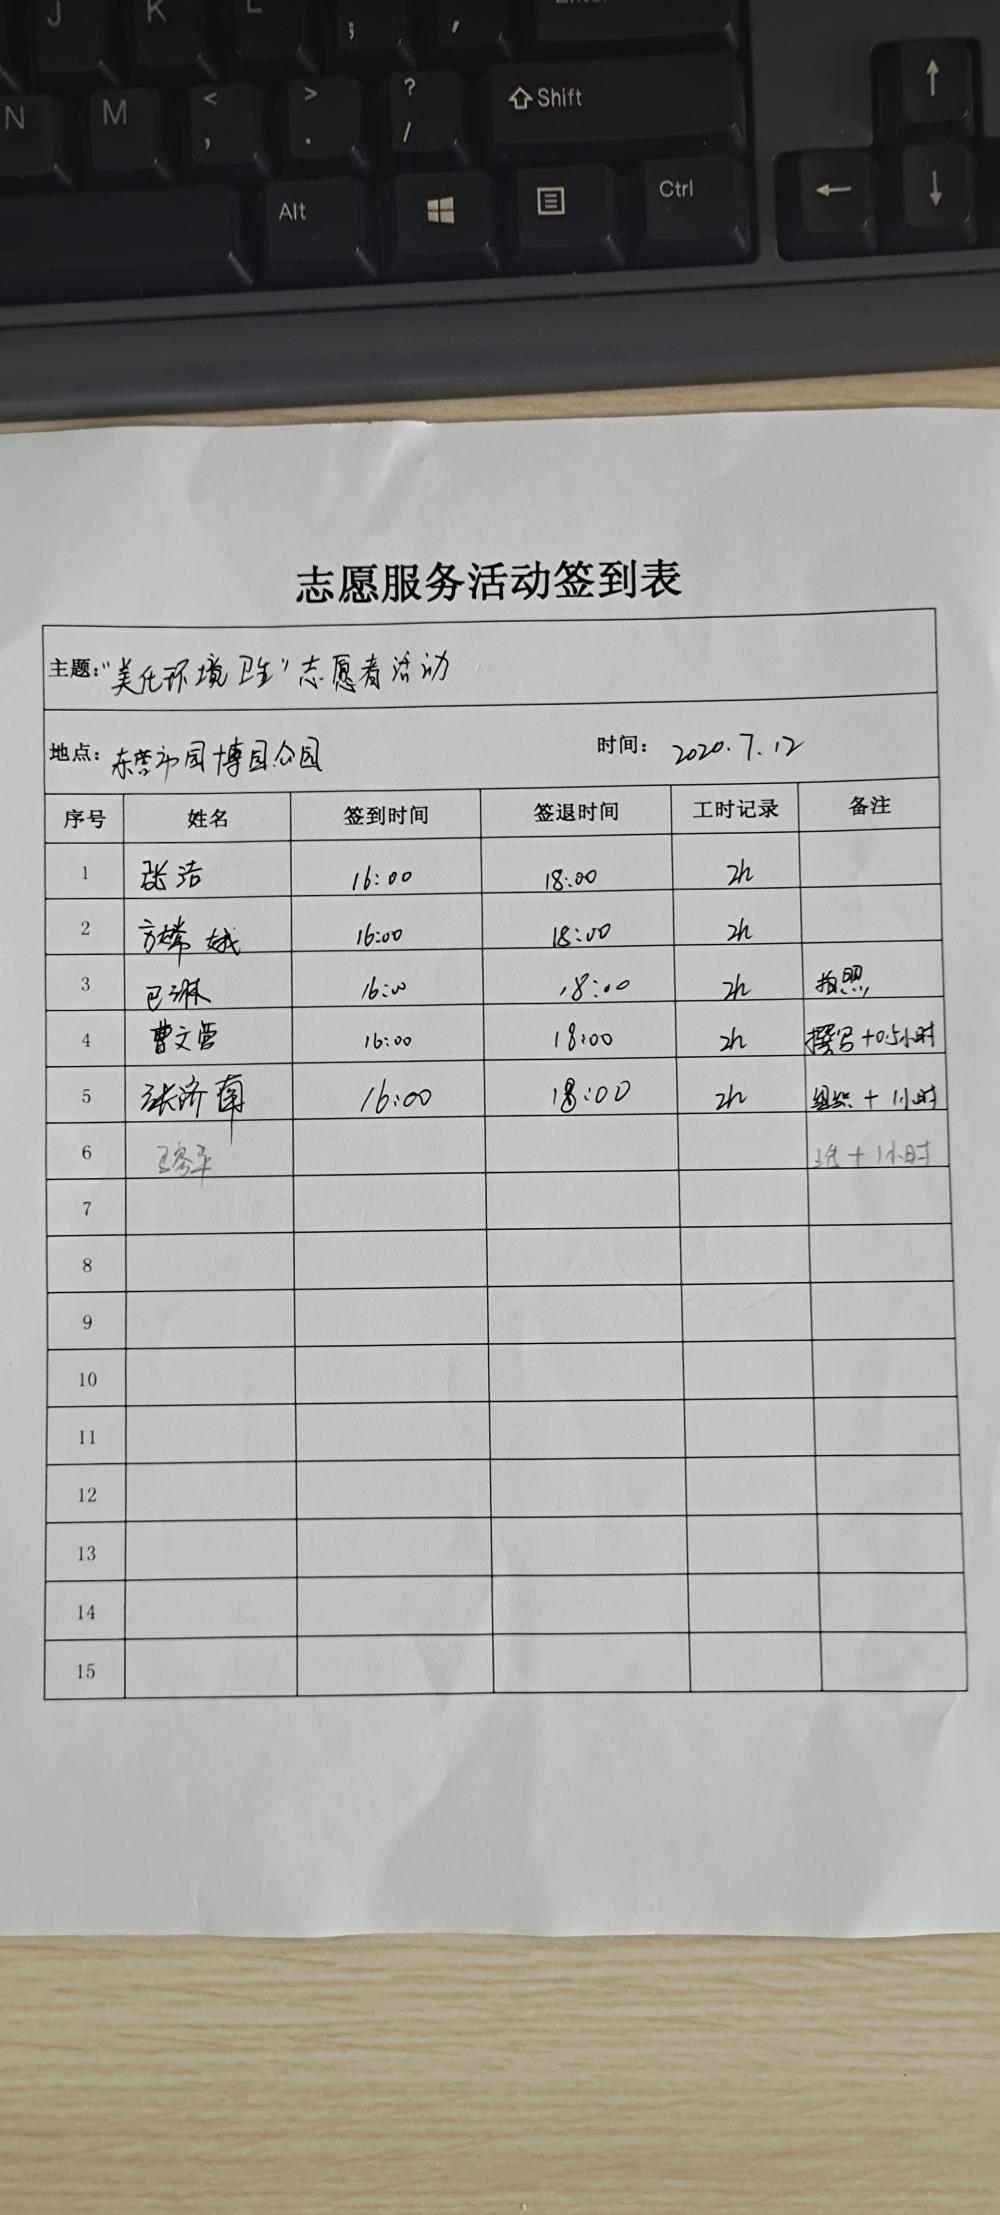 J K L ; ' Enter
N M < , > . ? / Shift ↑
Alt Ctrl ← ↓
志愿服务活动签到表
主题:“美化环境卫生”志愿者活动
地点: 东营市园博园公园 时间: 2020.7.12
序号 姓名 签到时间 签退时间 工时记录 备注
1 张洁 16:00 18:00 2h
2 方嫦娥 16:00 18:00 2h
3 巴琳 16:00 18:00 2h 拍照
4 曹文营 16:00 18:00 2h 撰写+0.5小时
5 张济南 16:00 18:00 2h 组织+1小时
6 +1小时
7
8
9
10
11
12
13
14
15